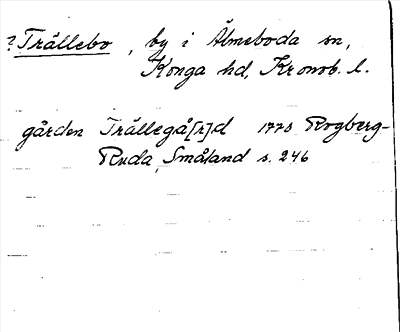 ? Trällebo, by i Älmeboda sn,
Konga hd, Kronob. l.
gården Trällegå[r]d 1770 Rogberg-
Ruda, Småland s. 246